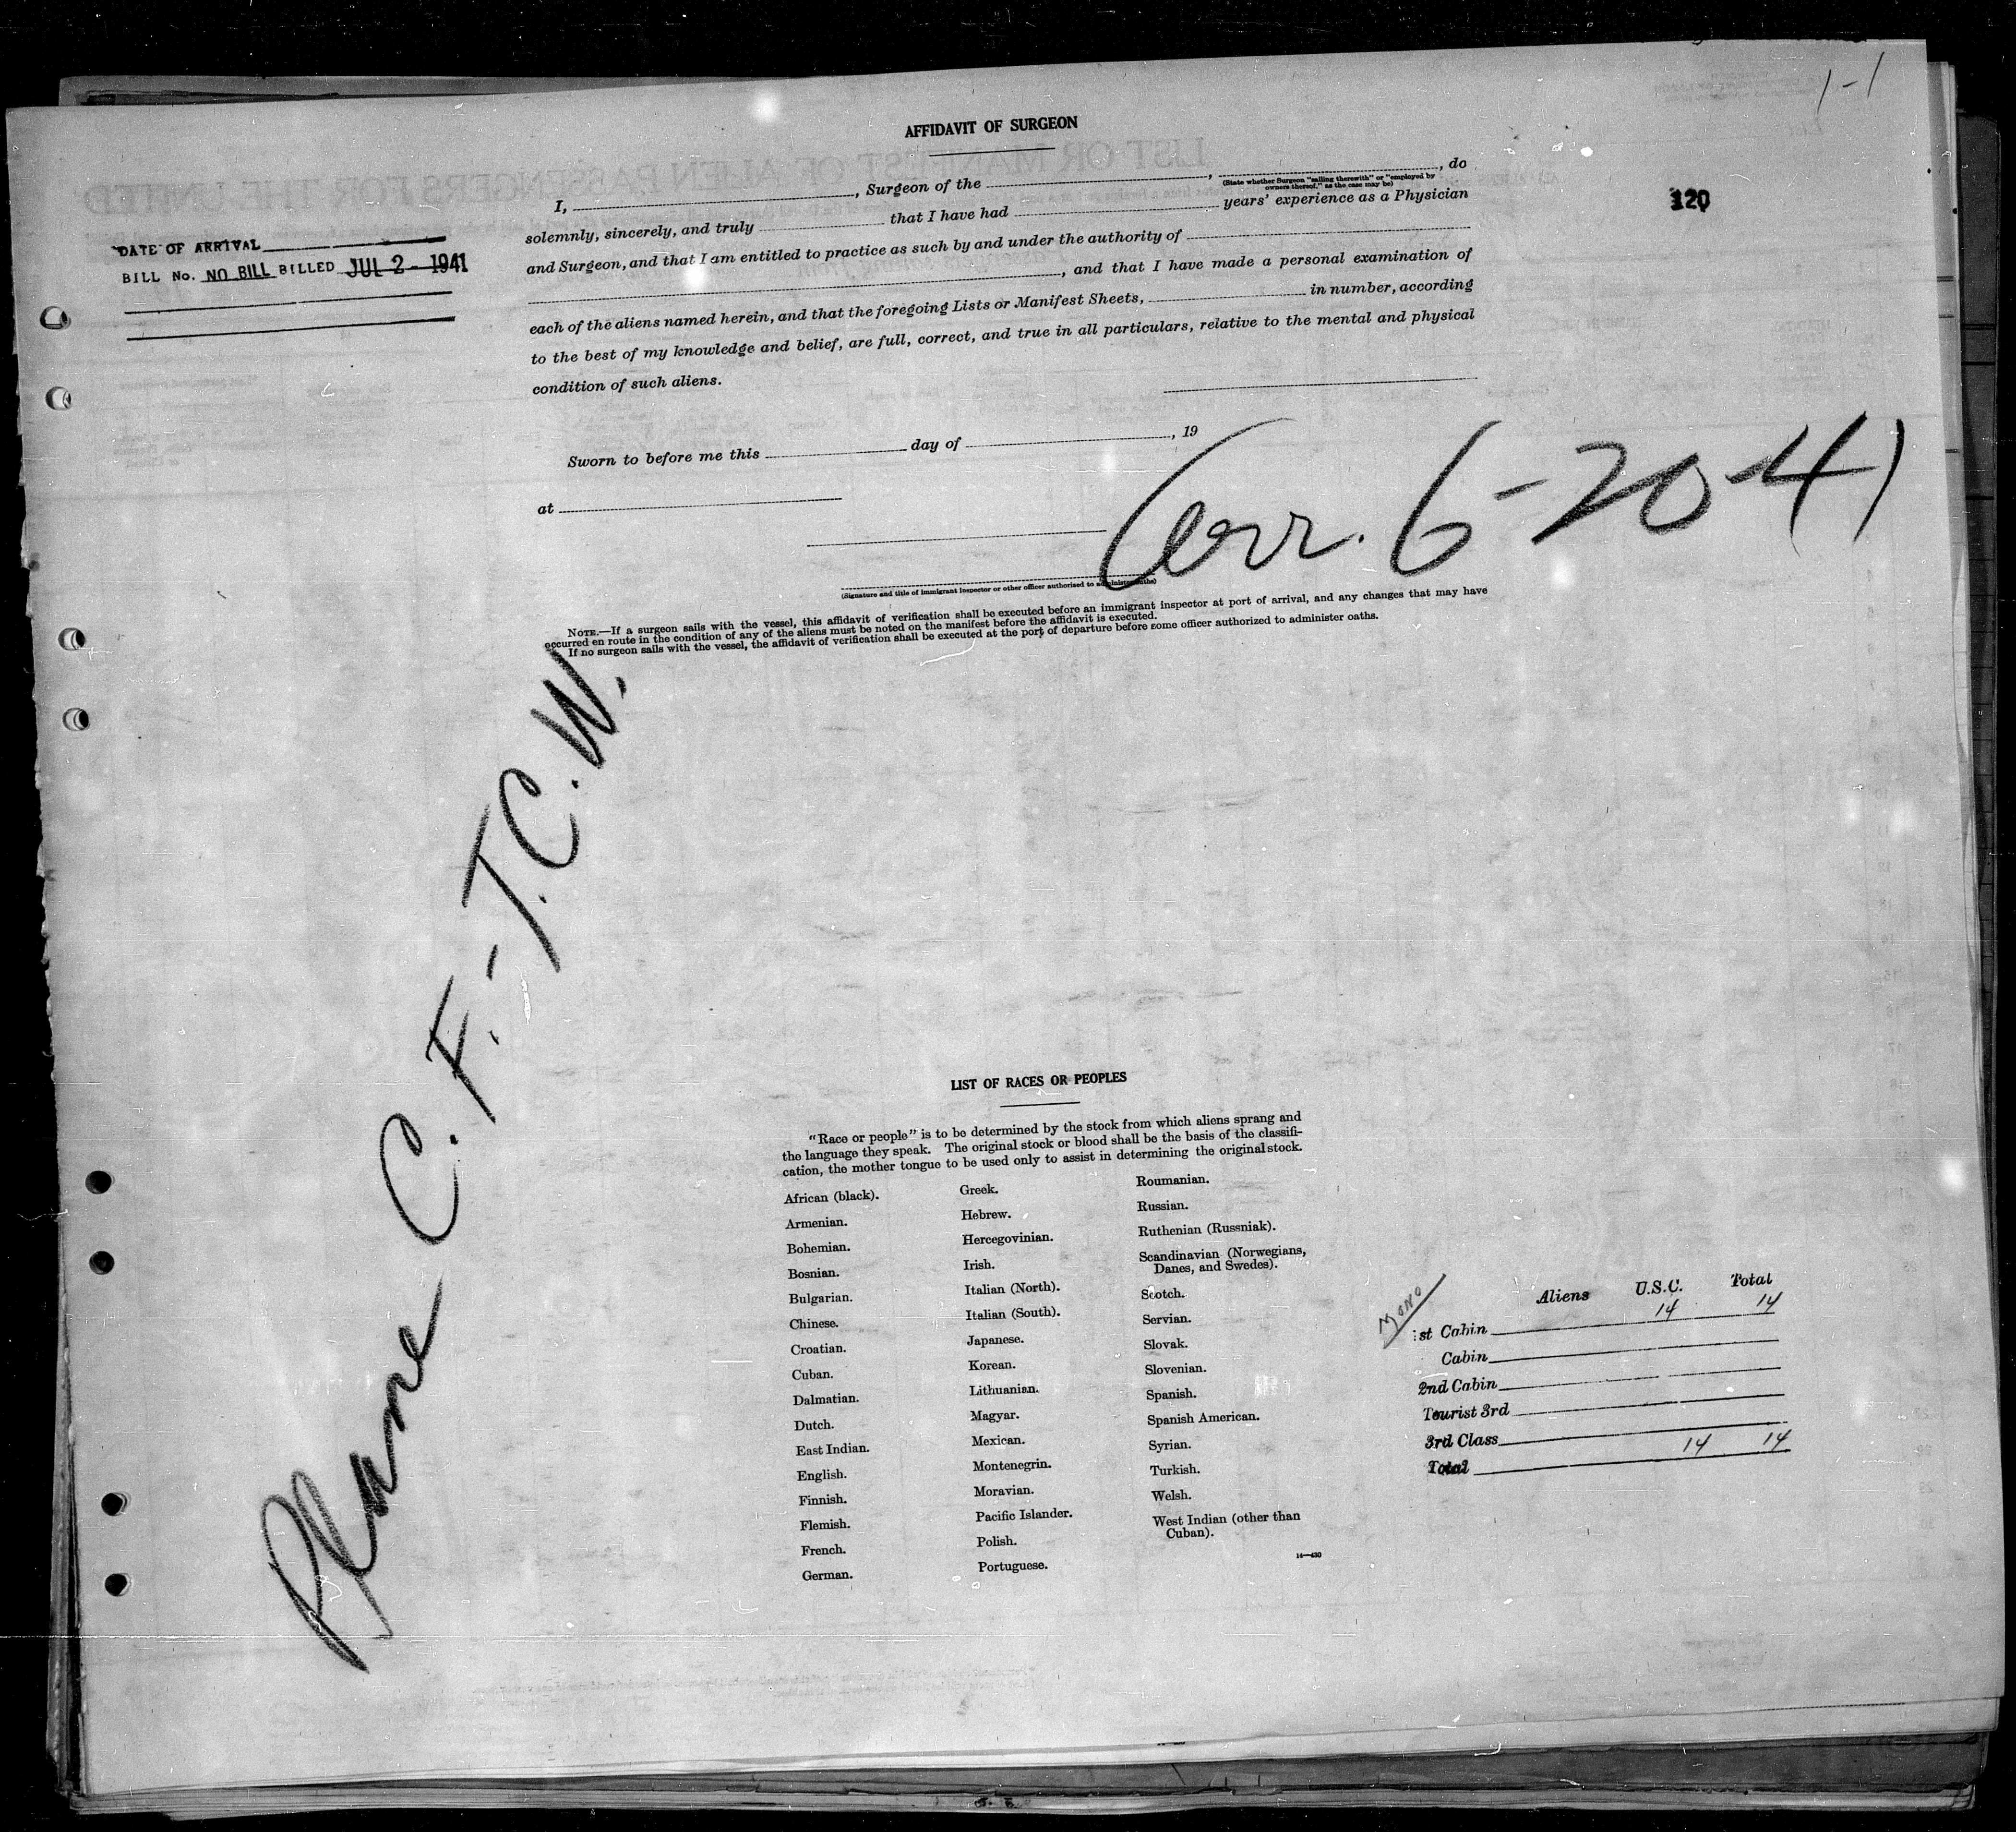 1-1
AFFIDAVIT OF SURGEON
120
I, , Surgeon of the , , do
(State whether Surgeon "sailing therewith" or "employed by
owners thereof," as the case may be)
solemnly, sincerely, and truly that I have had years' experience as a Physician
and Surgeon, and that I am entitled to practice as such by and under the authority of
, and that I have made a personal examination of
each of the aliens named herein, and that the foregoing Lists or Manifest Sheets, in number, according
to the best of my knowledge and belief, are full, correct, and true in all particulars, relative to the mental and physical
condition of such aliens.
DATE OF ARRIVAL
BILL No. NO BILL BILLED JUL 2 - 1941
Sworn to before me this day of , 19
at
arr. 6-20-41
(Signature and title of immigrant inspector or other officer authorized to administer oaths)
NOTE.—If a surgeon sails with the vessel, this affidavit of verification shall be executed before an immigrant inspector at port of arrival, and any changes that may have
occurred en route in the condition of any of the aliens must be noted on the manifest before the affidavit is executed.
If no surgeon sails with the vessel, the affidavit of verification shall be executed at the port of departure before some officer authorized to administer oaths.
Plane C. F.-T.C.W.
LIST OF RACES OR PEOPLES
"Race or people" is to be determined by the stock from which aliens sprang and
the language they speak. The original stock or blood shall be the basis of the classifi-
cation, the mother tongue to be used only to assist in determining the original stock.
African (black).
Armenian.
Bohemian.
Bosnian.
Bulgarian.
Chinese.
Croatian.
Cuban.
Dalmatian.
Dutch.
East Indian.
English.
Finnish.
Flemish.
French.
German.
Greek.
Hebrew.
Hercegovinian.
Irish.
Italian (North).
Italian (South).
Japanese.
Korean.
Lithuanian.
Magyar.
Mexican.
Montenegrin.
Moravian.
Pacific Islander.
Polish.
Portuguese.
Roumanian.
Russian.
Ruthenian (Russniak).
Scandinavian (Norwegians,
Danes, and Swedes).
Scotch.
Servian.
Slovak.
Slovenian.
Spanish.
Spanish American.
Syrian.
Turkish.
Welsh.
West Indian (other than
Cuban).
14—430
Aliens U.S.C. Total
1st Cabin 14 14
Cabin
2nd Cabin
Tourist 3rd
3rd Class
Total 14 14